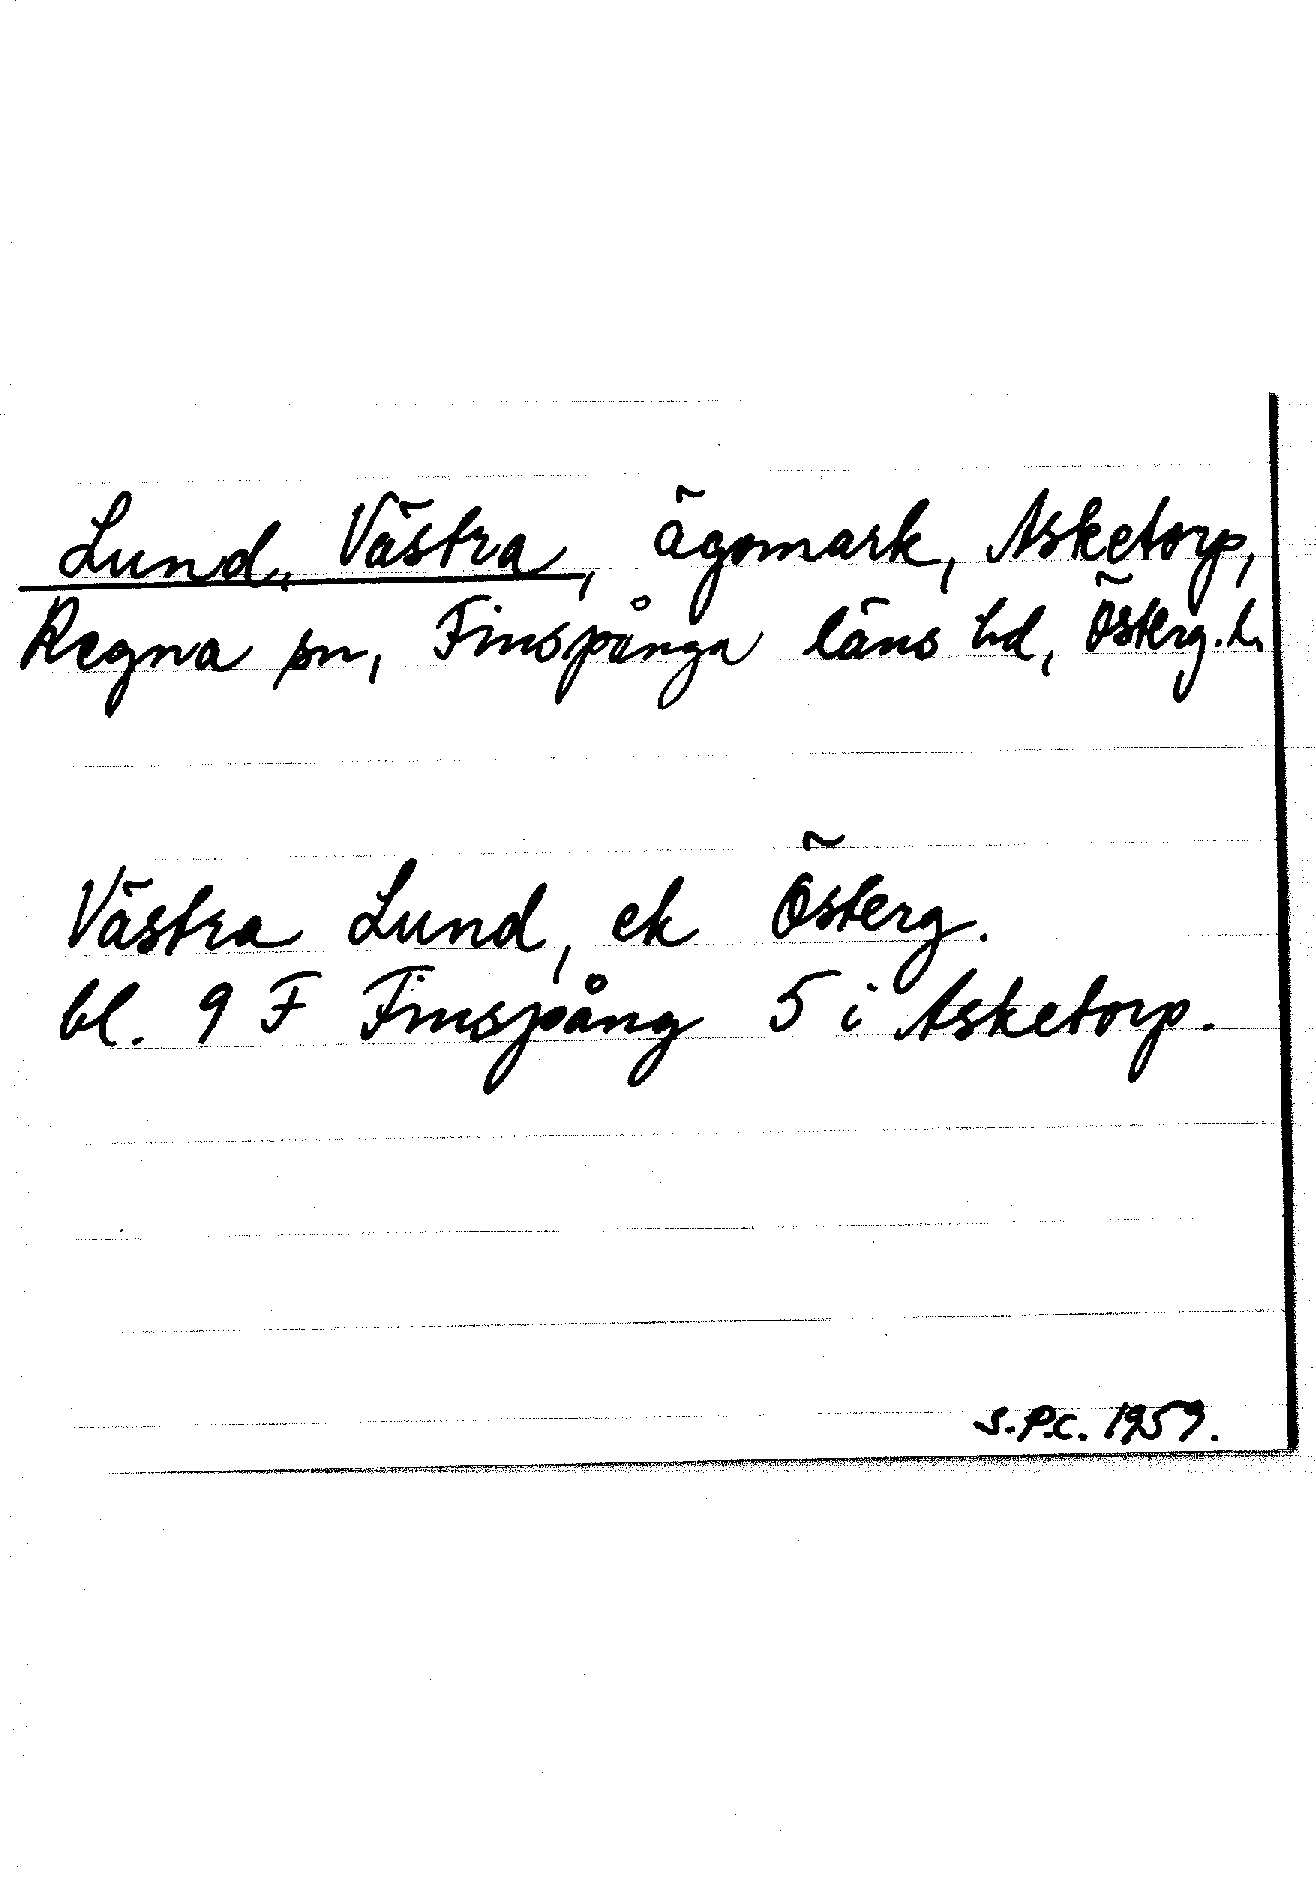 Lund, Västra, ägomark, Asketorp,
Regna sn, Finspånga läns hd, Österg. L.
Västra Lund, ek Österg.
bl. 9 F Finspång 5 i Asketorp.
S.P.C. 1959.